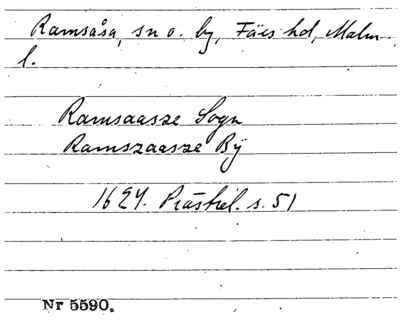 Ramsåsa, sn o. by, Färs hd, Malm.
l.
Ramsaasze Sogn
Ramszaasze Bÿ
1624. Prästrel. s. 51
Nr 5590.